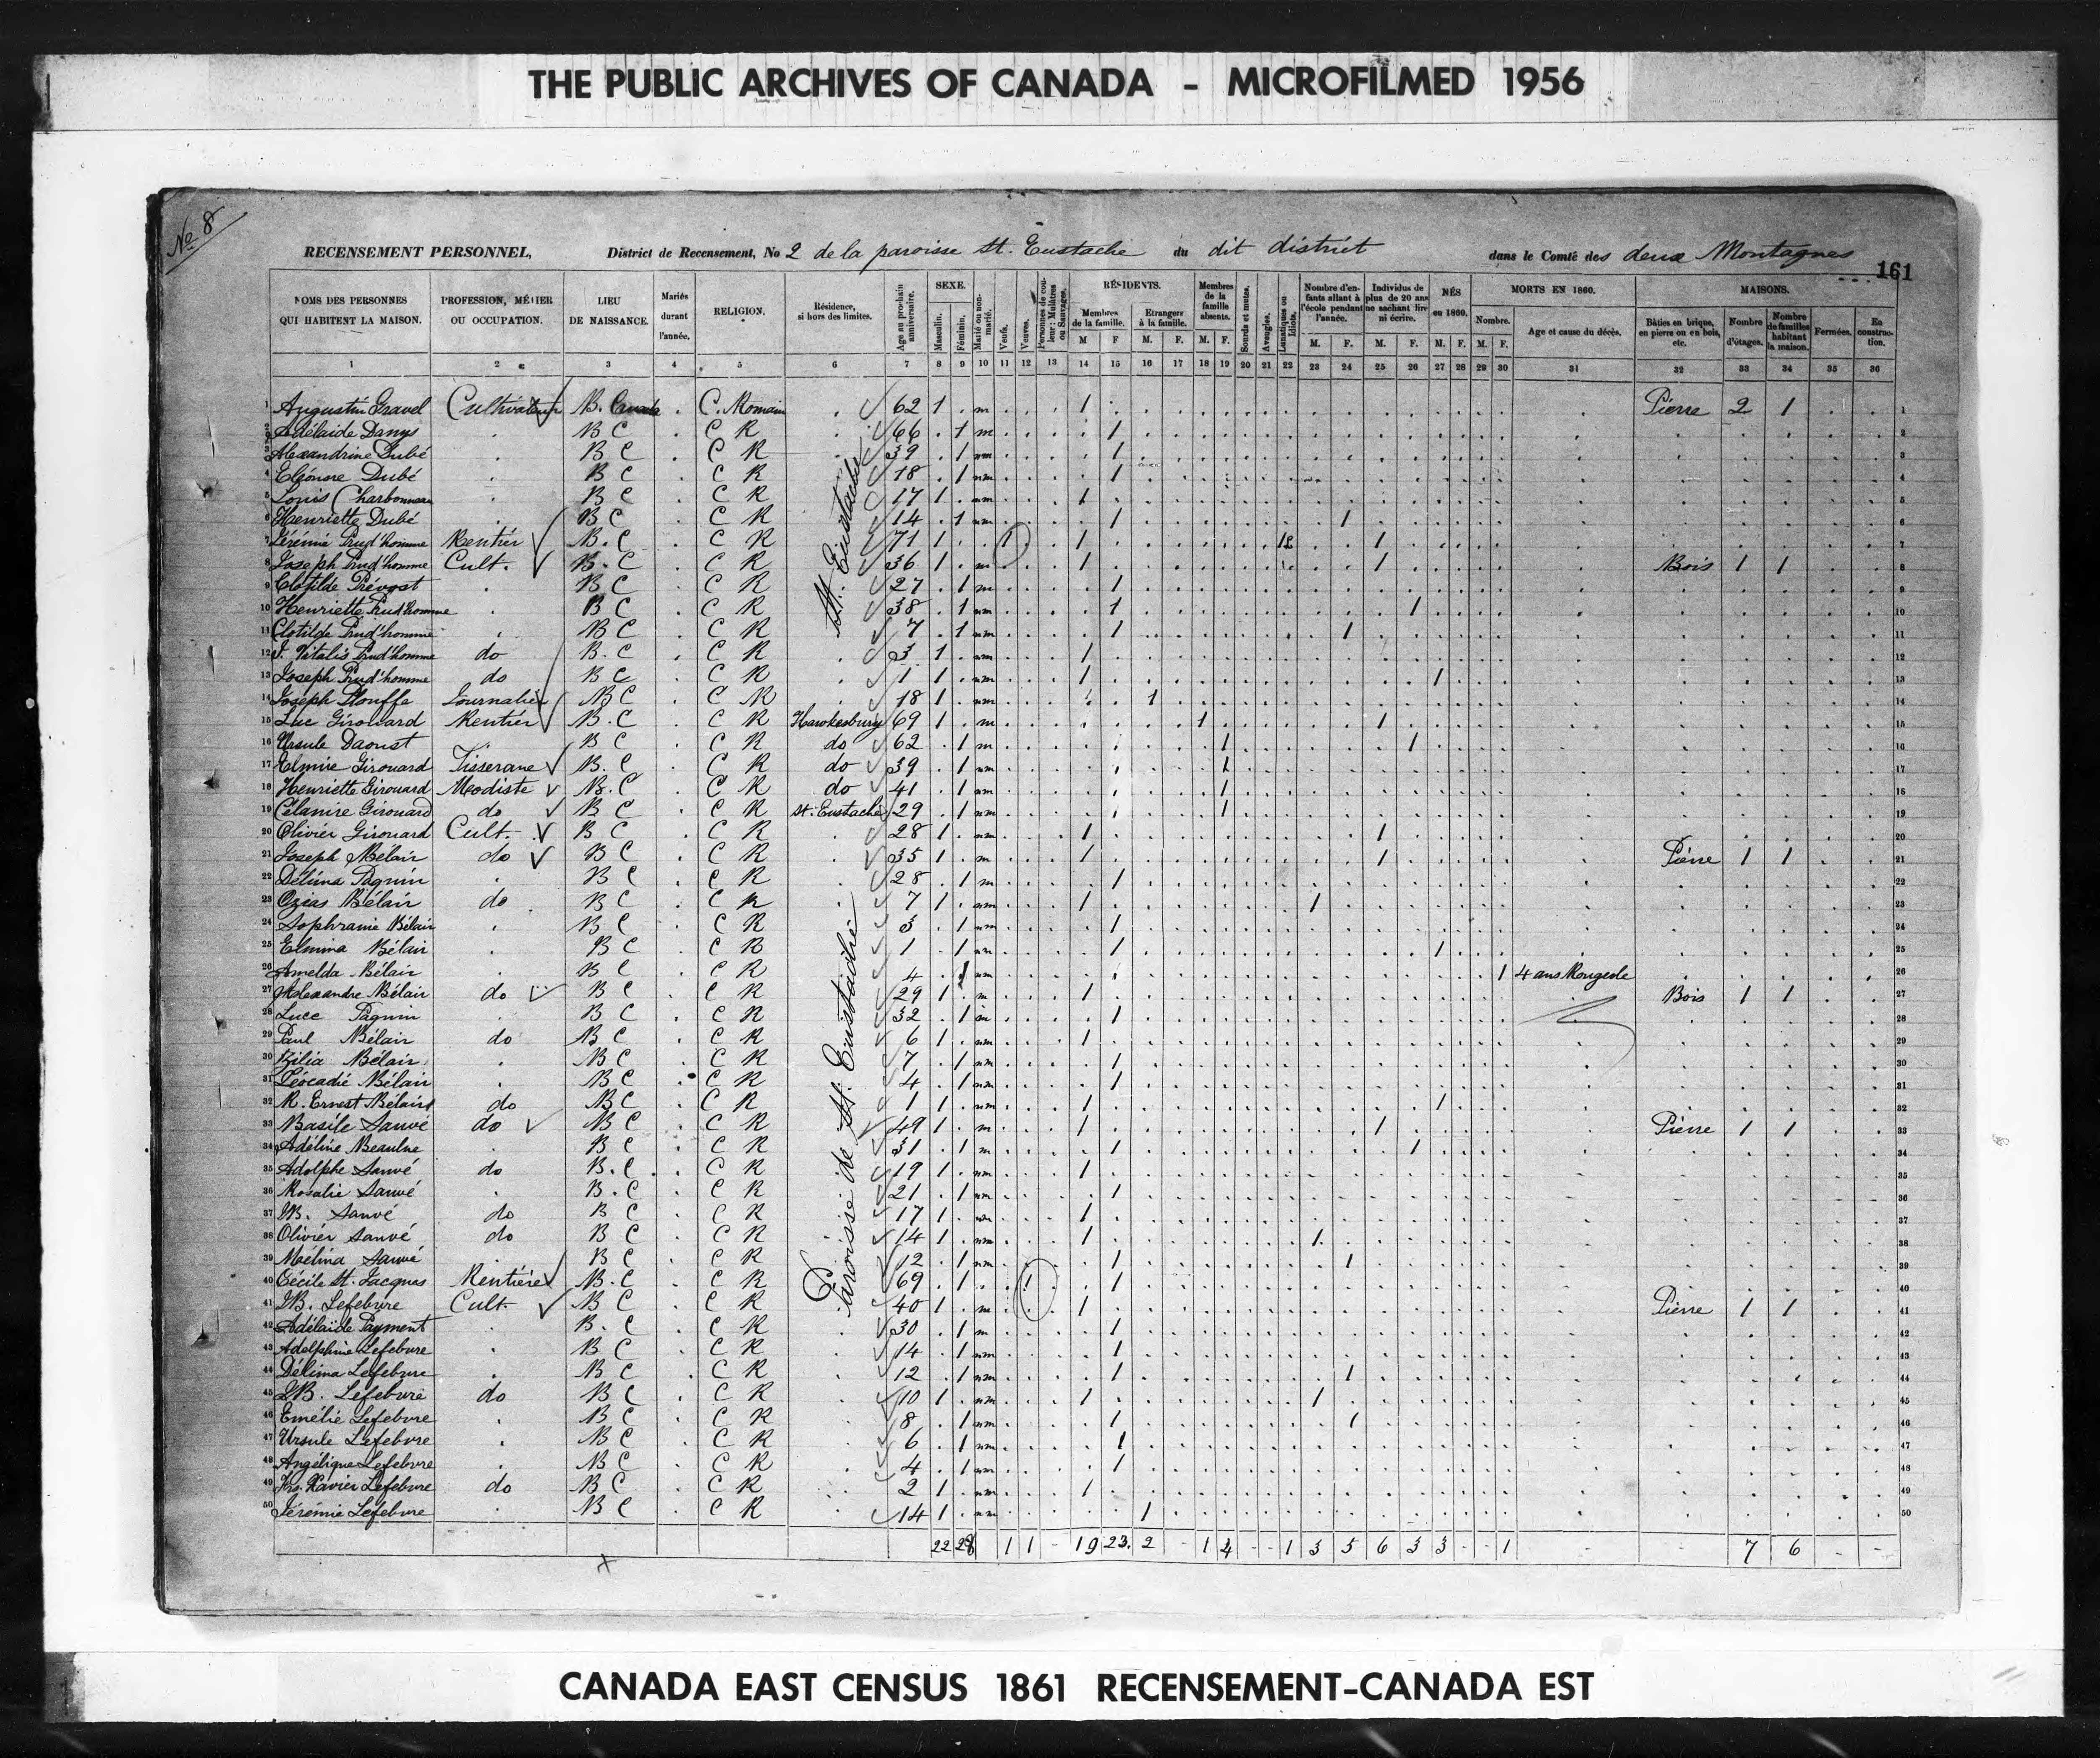 THE PUBLIC ARCHIVES OF CANADA - MICROFILMED 1956
No 8
RECENSEMENT PERSONNEL, District de Recensement, No 2 de la paroisse St. Eustache du dit district dans le Comté des deux Montagnes
161
NOMS DES PERSONNES QUI HABITENT LA MAISON. PROFESSION, MÉTIER OU OCCUPATION. LIEU DE NAISSANCE. Mariés durant l'année. RELIGION. Résidence, si hors des limites. Age au prochain anniversaire. SEXE. Masculin. Féminin. Marié ou non-marié. Veufs. Veuves. Personnes de couleur: Mulâtres ou Sauvages. RÉSIDENTS. Membres de la famille. M F Etrangers à la famille. M. F. Membres de la famille absents. M. F. Sourds et muets. Aveugles. Lunatiques ou Idiots. Nombre d'enfants allant à l'école pendant l'année. M. F. Individus de plus de 20 ans ne sachant lire ni écrire. M. F. NÉS en 1860. M. F. MORTS EN 1860. Nombre. M. F. Age et cause du décès. MAISONS. Bâties en brique, en pierre ou en bois, etc. Nombre d'étages. Nombre de familles habitant la maison. Fermées. En construction.
1 2 3 4 5 6 7 8 9 10 11 12 13 14 15 16 17 18 19 20 21 22 23 24 25 26 27 28 29 30 31 32 33 34 35 36
1 Augustin Gravel Cultivateur B. Canada C. Romain 62 1 m 1 Pierre 2 1 1
2 Adélaide Danys B C C R 66 1 m 1 2
3 Alexandrine Dubé B C C R 39 1 nm 1 3
4 Eléonore Dubé B C C R 18 1 nm 1 4
5 Louis Charbonneau B C C R 17 1 nm 1 5
6 Henriette Dubé B C C R 14 1 nm 1 1 6
7 Jérémie Prud'homme Rentier B. C C R 71 1 1 1 1 1 7
8 Joseph Prud'homme Cult. B. C C R 36 1 m 1 1 Bois 1 1 8
9 Clotilde Prévost B C C R 27 1 m 1 9
10 Henriette Prud'homme B C C R 38 1 nm 1 1 10
11 Clotilde Prud'homme B C C R 7 1 nm 1 1 11
12 J. Vitalis Prud'homme do B. C C R 3 1 nm 1 12
13 Joseph Prud'homme do B C C R 1 1 nm 1 1 13
14 Joseph Plouffe Journalier B C C R 18 1 nm 1 14
15 Luc Girouard Rentier B. C C R Hawkesbury 69 1 m 1 1 15
16 Ursule Daoust B C C R do 62 1 m 1 1 16
17 Elmire Girouard Tisserane B. C C R do 39 1 nm 1 17
18 Henriette Girouard Modiste B. C C R do 41 1 nm 1 18
19 Célanire Girouard do B C C R St. Eustache 29 1 nm 1 19
20 Olivier Girouard Cult. B C C R 28 1 nm 1 1 20
21 Joseph Bélair do B C C R 35 1 m 1 1 Pierre 1 1 21
22 Délima Paquin B C C R 28 1 m 1 22
23 Ozeas Bélair do B C C R 7 1 nm 1 1 23
24 Sophranie Bélair B C C R 3 1 nm 1 24
25 Elmina Bélair B C C R 1 1 nm 1 1 25
26 Amelda Bélair B C C R 4 1 nm 1 4 ans Rougeole 26
27 Alexandre Bélair do B C C R 29 1 m 1 Bois 1 1 27
28 Luce Paquin B C C R 32 1 m 1 28
29 Paul Bélair do B C C R 6 1 nm 1 29
30 Zilia Bélair B C C R 7 1 nm 1 30
31 Léocadie Bélair B C C R 4 1 nm 1 31
32 R. Ernest Bélair do B C C R 1 1 nm 1 1 32
33 Basile Sauvé do B C C R 49 1 m 1 1 Pierre 1 1 33
34 Adéline Beaulne B C C R 31 1 m 1 1 34
35 Adolphe Sauvé do B. C C R 19 1 nm 1 35
36 Rosalie Sauvé B. C C R 21 1 nm 1 36
37 JB. Sauvé do B C C R 17 1 nm 1 37
38 Olivier Sauvé do B C C R 14 1 nm 1 1 38
39 Mélina Sauvé B C C R 12 1 nm 1 1 39
40 Cécile St. Jacques Rentière B. C C R 69 1 1 1 40
41 JB. Lefebvre Cult. B C C R 40 1 m 1 Pierre 1 1 41
42 Adélaïde Payment B. C C R 30 1 m 1 42
43 Adelphine Lefebvre B C C R 14 1 nm 1 43
44 Délima Lefebvre B C C R 12 1 nm 1 1 44
45 JB. Lefebvre do B C C R 10 1 nm 1 1 45
46 Emélie Lefebvre B C C R 8 1 nm 1 1 46
47 Ursule Lefebvre B C C R 6 1 nm 1 47
48 Angélique Lefebvre B C C R 4 1 nm 1 48
49 Frs. Xavier Lefebvre do B C C R 2 1 nm 1 49
50 Jérémie Lefebvre B C C R 14 1 nm 1 50
St. Eustache
Paroisse de St. Eustache
22 28 1 1 - 19 23. 2 - 1 4 - - 1 3 5 6 3 3 - - 1 - - 7 6 - -
CANADA EAST CENSUS 1861 RECENSEMENT-CANADA EST